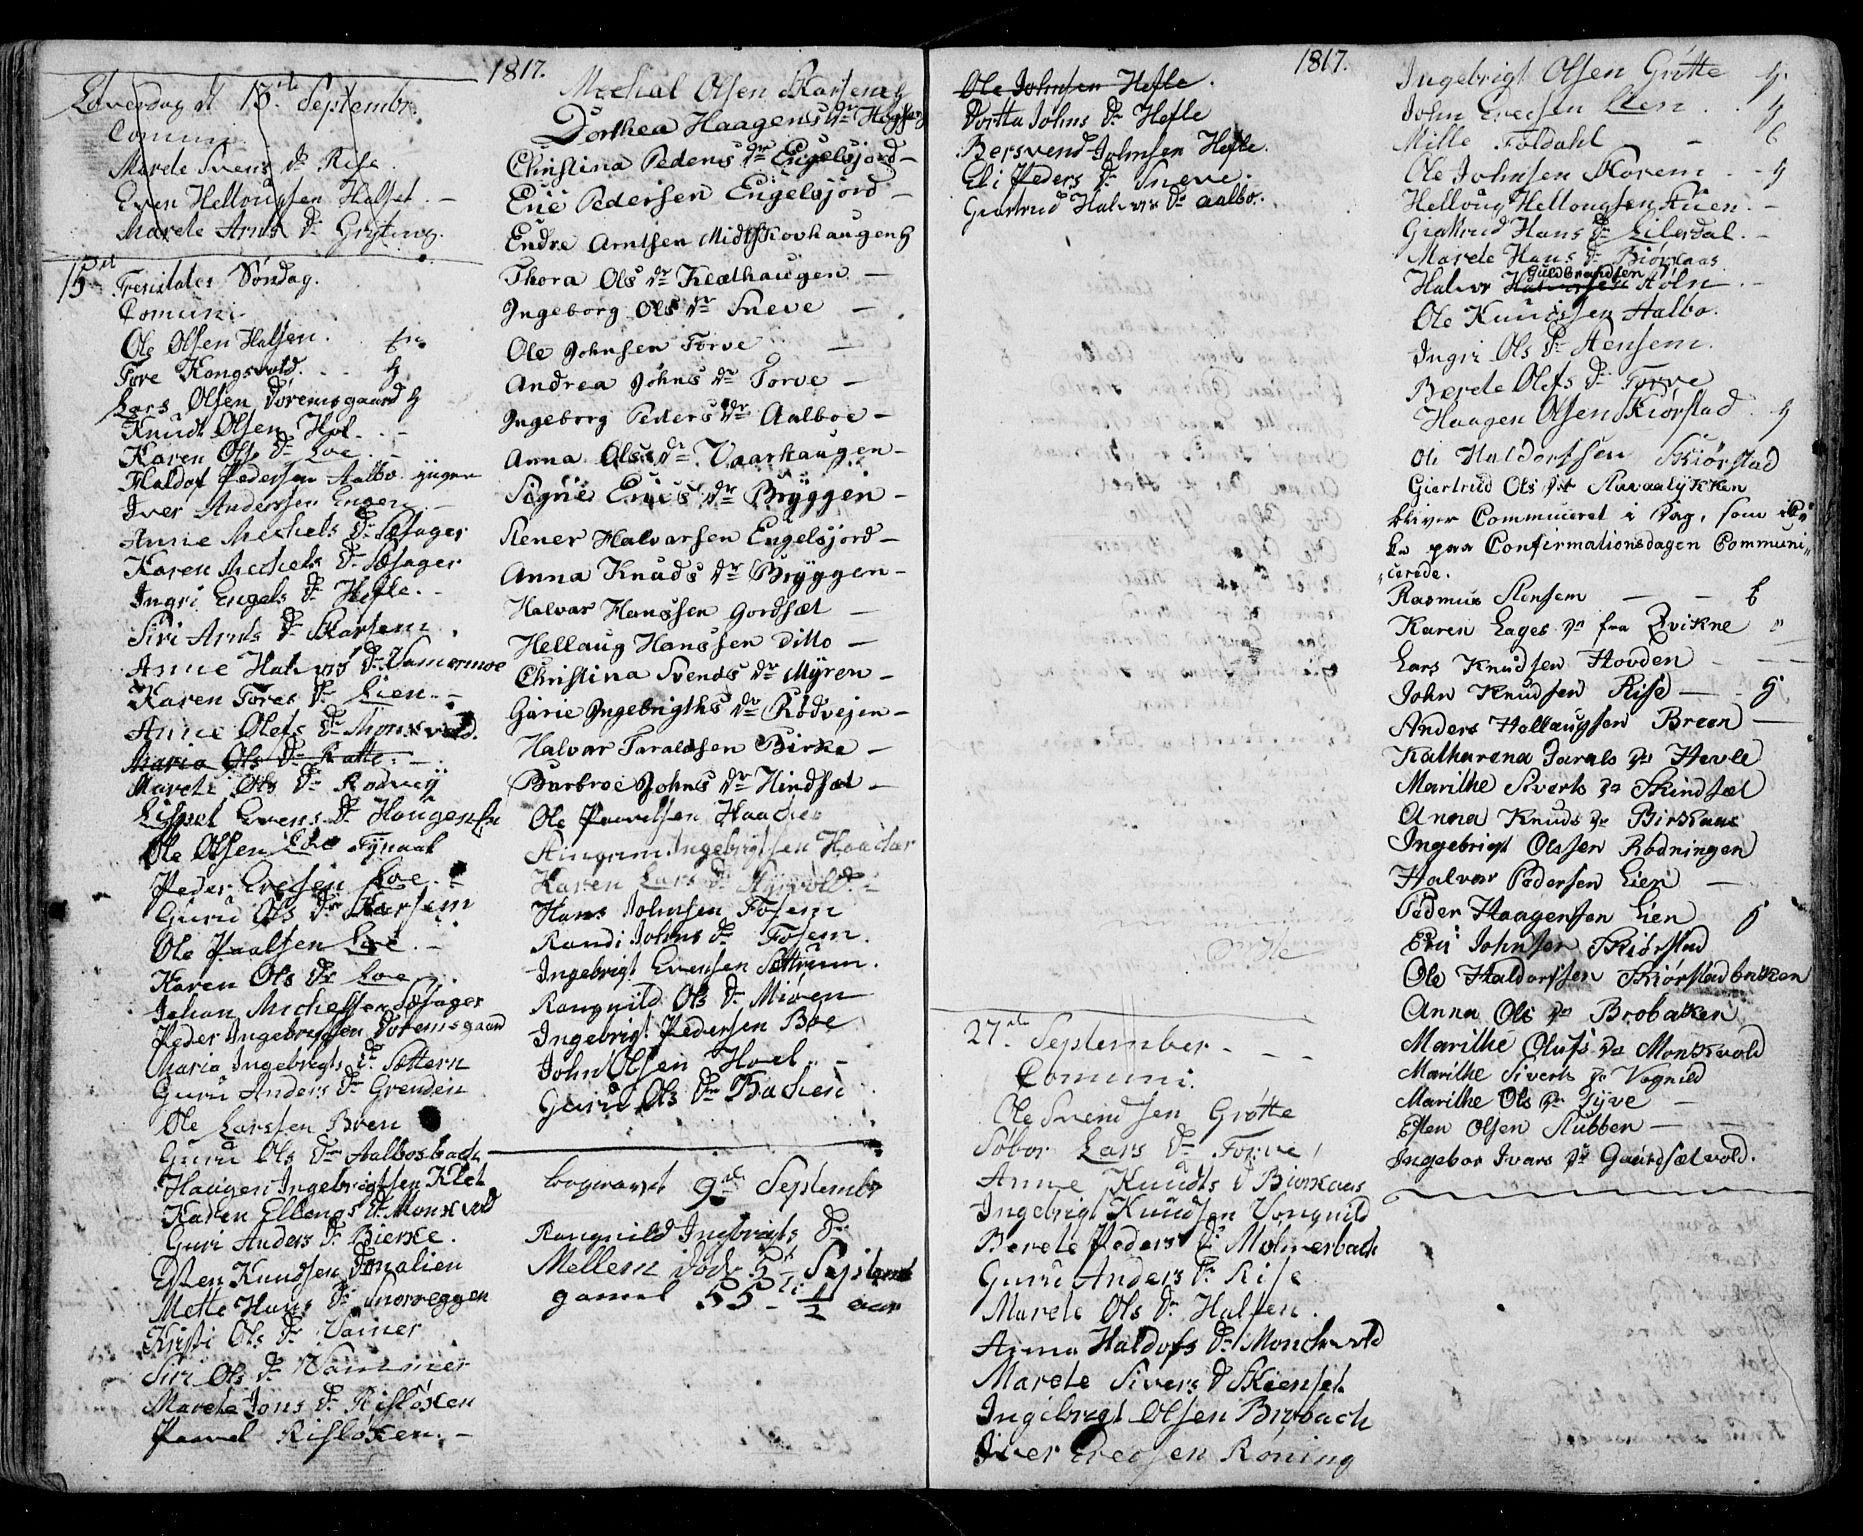 1817.
Løverdag d 13de Septembr.
Comuni
Marete Svens Dr Rise
Even Hellougsen Halset. -
Marete Arnts Dr Gryting.
15de Trenitates Søndag.
Comuni
Ole Olsen Halsen.
Tore Kongsvold.
Lars Olsen Dovremsgaard
Knudt Olsen Hol. -
Karen Ols Dr Loe -
Haldor Pedersen Aalbo yngere
Iver Andersen Engen -
Anne Mechels Dr Sæsager
Karen Mechels Dr Sæsager
Ingri Engels Dr Hefle. -
Siri Arnts Dr Skarsem.
Anne Halvrs Dr Vamermoe
Karen Tores Dr Lien. -
Anne Olefs Dr Monsvold.
Maria Ols Dr Ratte. -
Mareti Ols Dr Rodvey
Lispet Evens Dr Hougen
Ole Olsen Tynaal
Peder Evesen Loe. -
Guru Ols Dr Skarsem
Ole Paalsen Loe. -
Karen Ols Dr Loe -
Johan Michelsen Sæsager
Peder Ingebrigtsen Dovremsgaard
Maria Ingebrigts Dr Sættern
Guru Anders Dr Grenden
Ole Larssen Bren
Guru Ols Dr Aalbosbach
Haugen Ingebrigtsen Klet
Karen Ellengs Dr Monsvold
Guri Anders Dr Bierke.
Esten Knudsen Donalien
Mette Hans Dr Snoreggen
Kirsti Ols Dr Vamer
Siri Ols Dr Vammer
Marete Jons Dr Risløken
Paavel Risløken. -
Mechal Olsen Skarsem
Dorthea Haagens Dr
Christina Peders Dr Engelsjord -
Eric Pedersen Engelsjord -
Endre Arntsen Midtskovhaugen
Thora Ols Dr Klæthaugen -
Ingeborg Ols Dr Sneve -
Ole Johnsen Torve -
Andrea Johns Dr Torve -
Ingeborg Peders Dr Aalboe -
Anna Olss Dr Vaarhaugen -
Signe Erics Dr Bryggen -
Stener Halvarsen Engelsjord -
Anna Knuds Dr Bryggen -
Halvar Hanssen Gordsæt -
Hellaug Hanssen Ditto -
Christina Svends Dr Myren -
Garie Ingebrigths Dr Rødvejen -
Halvar Taraldsen Birke -
Barbroe Johns Dr Hindsæt -
Ole Paavelsen Haacker
Stingrim Ingebrigtsen Haacker
Karen Lars Dr
Hans Johnsen Fosem
Randi Johns Dr Fosem.
Ingebrigt Evensen Sættrum.
Rangnild Ols Dr Mioen
Ingebrigt Pedersen Boe
John Olsen Hoel. -
Guru Ols Dr Backen
begravet 9de Septembr
Rangnild Ingbrigts Dr
Mellem døde 5te Septemb
gamel 55 1/2 aar
1817.
Ole Johnsen Hefle.
Dortta Johns Dr Hefle
Bersvend Johnsen Hefle.
Eli Peders Dr Sneve.
Giærtrud Halvrs Dr Aalbo.
27de September. - - -
Comuni.
Ole Svendsen Grøtte
Sobor Lars Dr Torve
Anne Knudts D Biørkaas
Ingebrigt Knudsen Vongnild
Berete Peders Dr Molmerbach
Guru Anders Dr Rise
Marete Ols Dr Halsen.
Anna Haldofs Dr Monchvold
Marete Sivers D Skienset
Ingebrigt Olsen Brobach
Iver Evedsen Røning
Ingebrigt Olsen Grøtte
John Evesen Lien
Mille Foldahl -
Ole Johnsen Skorem
Helloug Hellougsen Auen -
Giættrud Hans Dr Lilerdal. -
Marete Hans Dr Biørkaas
Guldbrandsen
Halvr Halvorsen Aoln -
Ole Knudssen Aalbo.
Ingri Ols Dr Stensem.
Berete Olefs Dr Torve
Haagen Olsen Kiørstad
Ole Haldorssen Skiørstad
Giertrud Ols Dr Slavaalykken
bliver Communiceret i Dag, som ik-
ke paa Confirmationsdagen Communi-
cerede.
Rasmus Stensem - -
Karen Lages Dr fra Qvikne
Lars Knudsen Hovden - -
John Knudsen Rise - -
Anders Hallaugsen Breen -
Katharena Tarals Dr Hevle
Marithe Siverts Dr Skindsæt
Anna Knuds Dr Birkaas
Ingebrigt Olssen Rødningen
Halvar Pedersen Lien -
Peder Haagensen Lien
Eric Johnsen Skiørstad
Ole Haldorssen Skiørstadbakken
Anna Ols Dr Brobakken
Marithe Olufs Dr Monkvold
Marithe Siverts Dr Vognild
Marithe Ols Dr Tyve -
Esten Olsen Stubben -
Ingebor Ivars Dr Gaardsætvold.